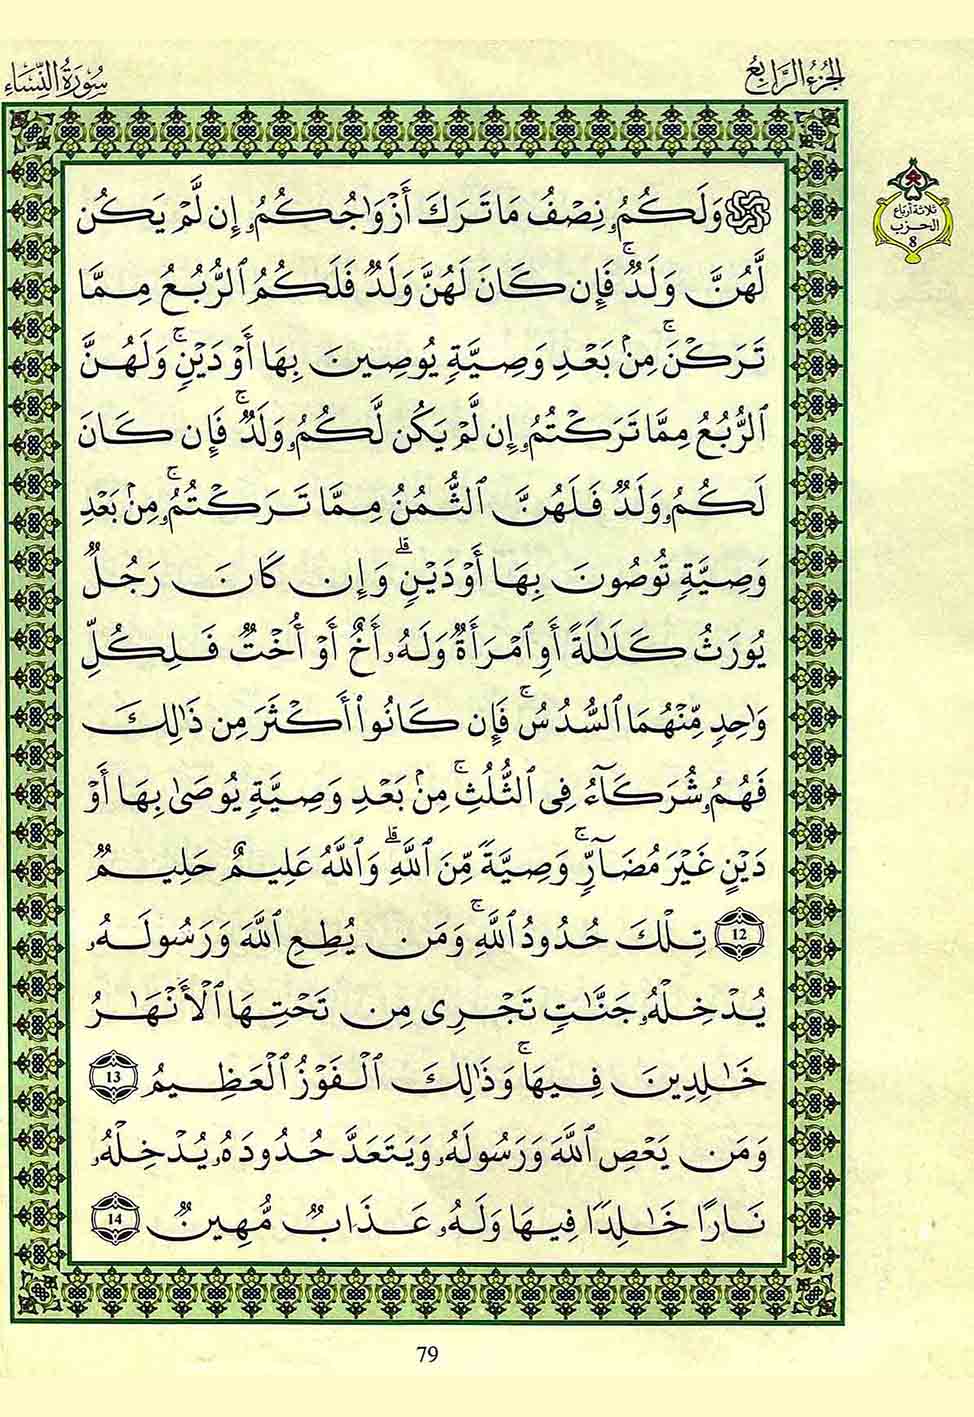 الجزء الرابع
سورة النساء
ثلاثة أرباع
الحزب
8
۞ وَلَكُمُۥ نِصْفُ مَا تَرَكَ أَزْوَٰجُكُمُۥٓ إِن لَّمْ يَكُن
لَّهُنَّ وَلَدٌۚ فَإِن كَانَ لَهُنَّ وَلَدٌ فَلَكُمُ اُ۬لرُّبُعُ مِمَّا
تَرَكْنَۚ مِنۢ بَعْدِ وَصِيَّةٍ يُوصِينَ بِهَا أَوْ دَيْنٍۚ وَلَهُنَّ
اَ۬لرُّبُعُ مِمَّا تَرَكْتُمُۥٓ إِن لَّمْ يَكُن لَّكُمُۥ وَلَدٌۚ فَإِن كَانَ
لَكُمُۥ وَلَدٌ فَلَهُنَّ اَ۬لثُّمُنُ مِمَّا تَرَكْتُمُۥۚ مِنۢ بَعْدِ
وَصِيَّةٍ تُوصُونَ بِهَا أَوْ دَيْنٍۗ وَإِن كَانَ رَجُلٌ
يُورَثُ كَلَٰلَةً أَوِ اِ۪مْرَأَةٌ وَلَهُۥ أَخٌ أَوْ أُخْتٌ فَلِكُلِّ
وَٰحِدٍ مِّنْهُمَا اَ۬لسُّدُسُۚ فَإِن كَانُواْ أَكْثَرَ مِن ذَٰلِكَ
فَهُمُۥ شُرَكَآءُ فِى اِ۬لثُّلُثِۚ مِنۢ بَعْدِ وَصِيَّةٍ يُوصَىٰ بِهَا أَوْ
دَيْنٍ غَيْرَ مُضَآرٍّۚ وَصِيَّةً مِّنَ اَ۬للَّهِۗ وَاللَّهُ عَلِيمٌ حَلِيمٌ
12 تِلْكَ حُدُودُ اُ۬للَّهِۚ وَمَن يُطِعِ اِ۬للَّهَ وَرَسُولَهُۥ
يُدْخِلْهُۥ جَنَّٰتٍ تَجْرِى مِن تَحْتِهَا اَ۬لْأَنْهَٰرُ
خَٰلِدِينَ فِيهَاۚ وَذَٰلِكَ اَ۬لْفَوْزُ اُ۬لْعَظِيمُ 13
وَمَن يَعْصِ اِ۬للَّهَ وَرَسُولَهُۥ وَيَتَعَدَّ حُدُودَهُۥ يُدْخِلْهُۥ
نَارًا خَٰلِدًا فِيهَا وَلَهُۥ عَذَابٌ مُّهِينٌ 14
79